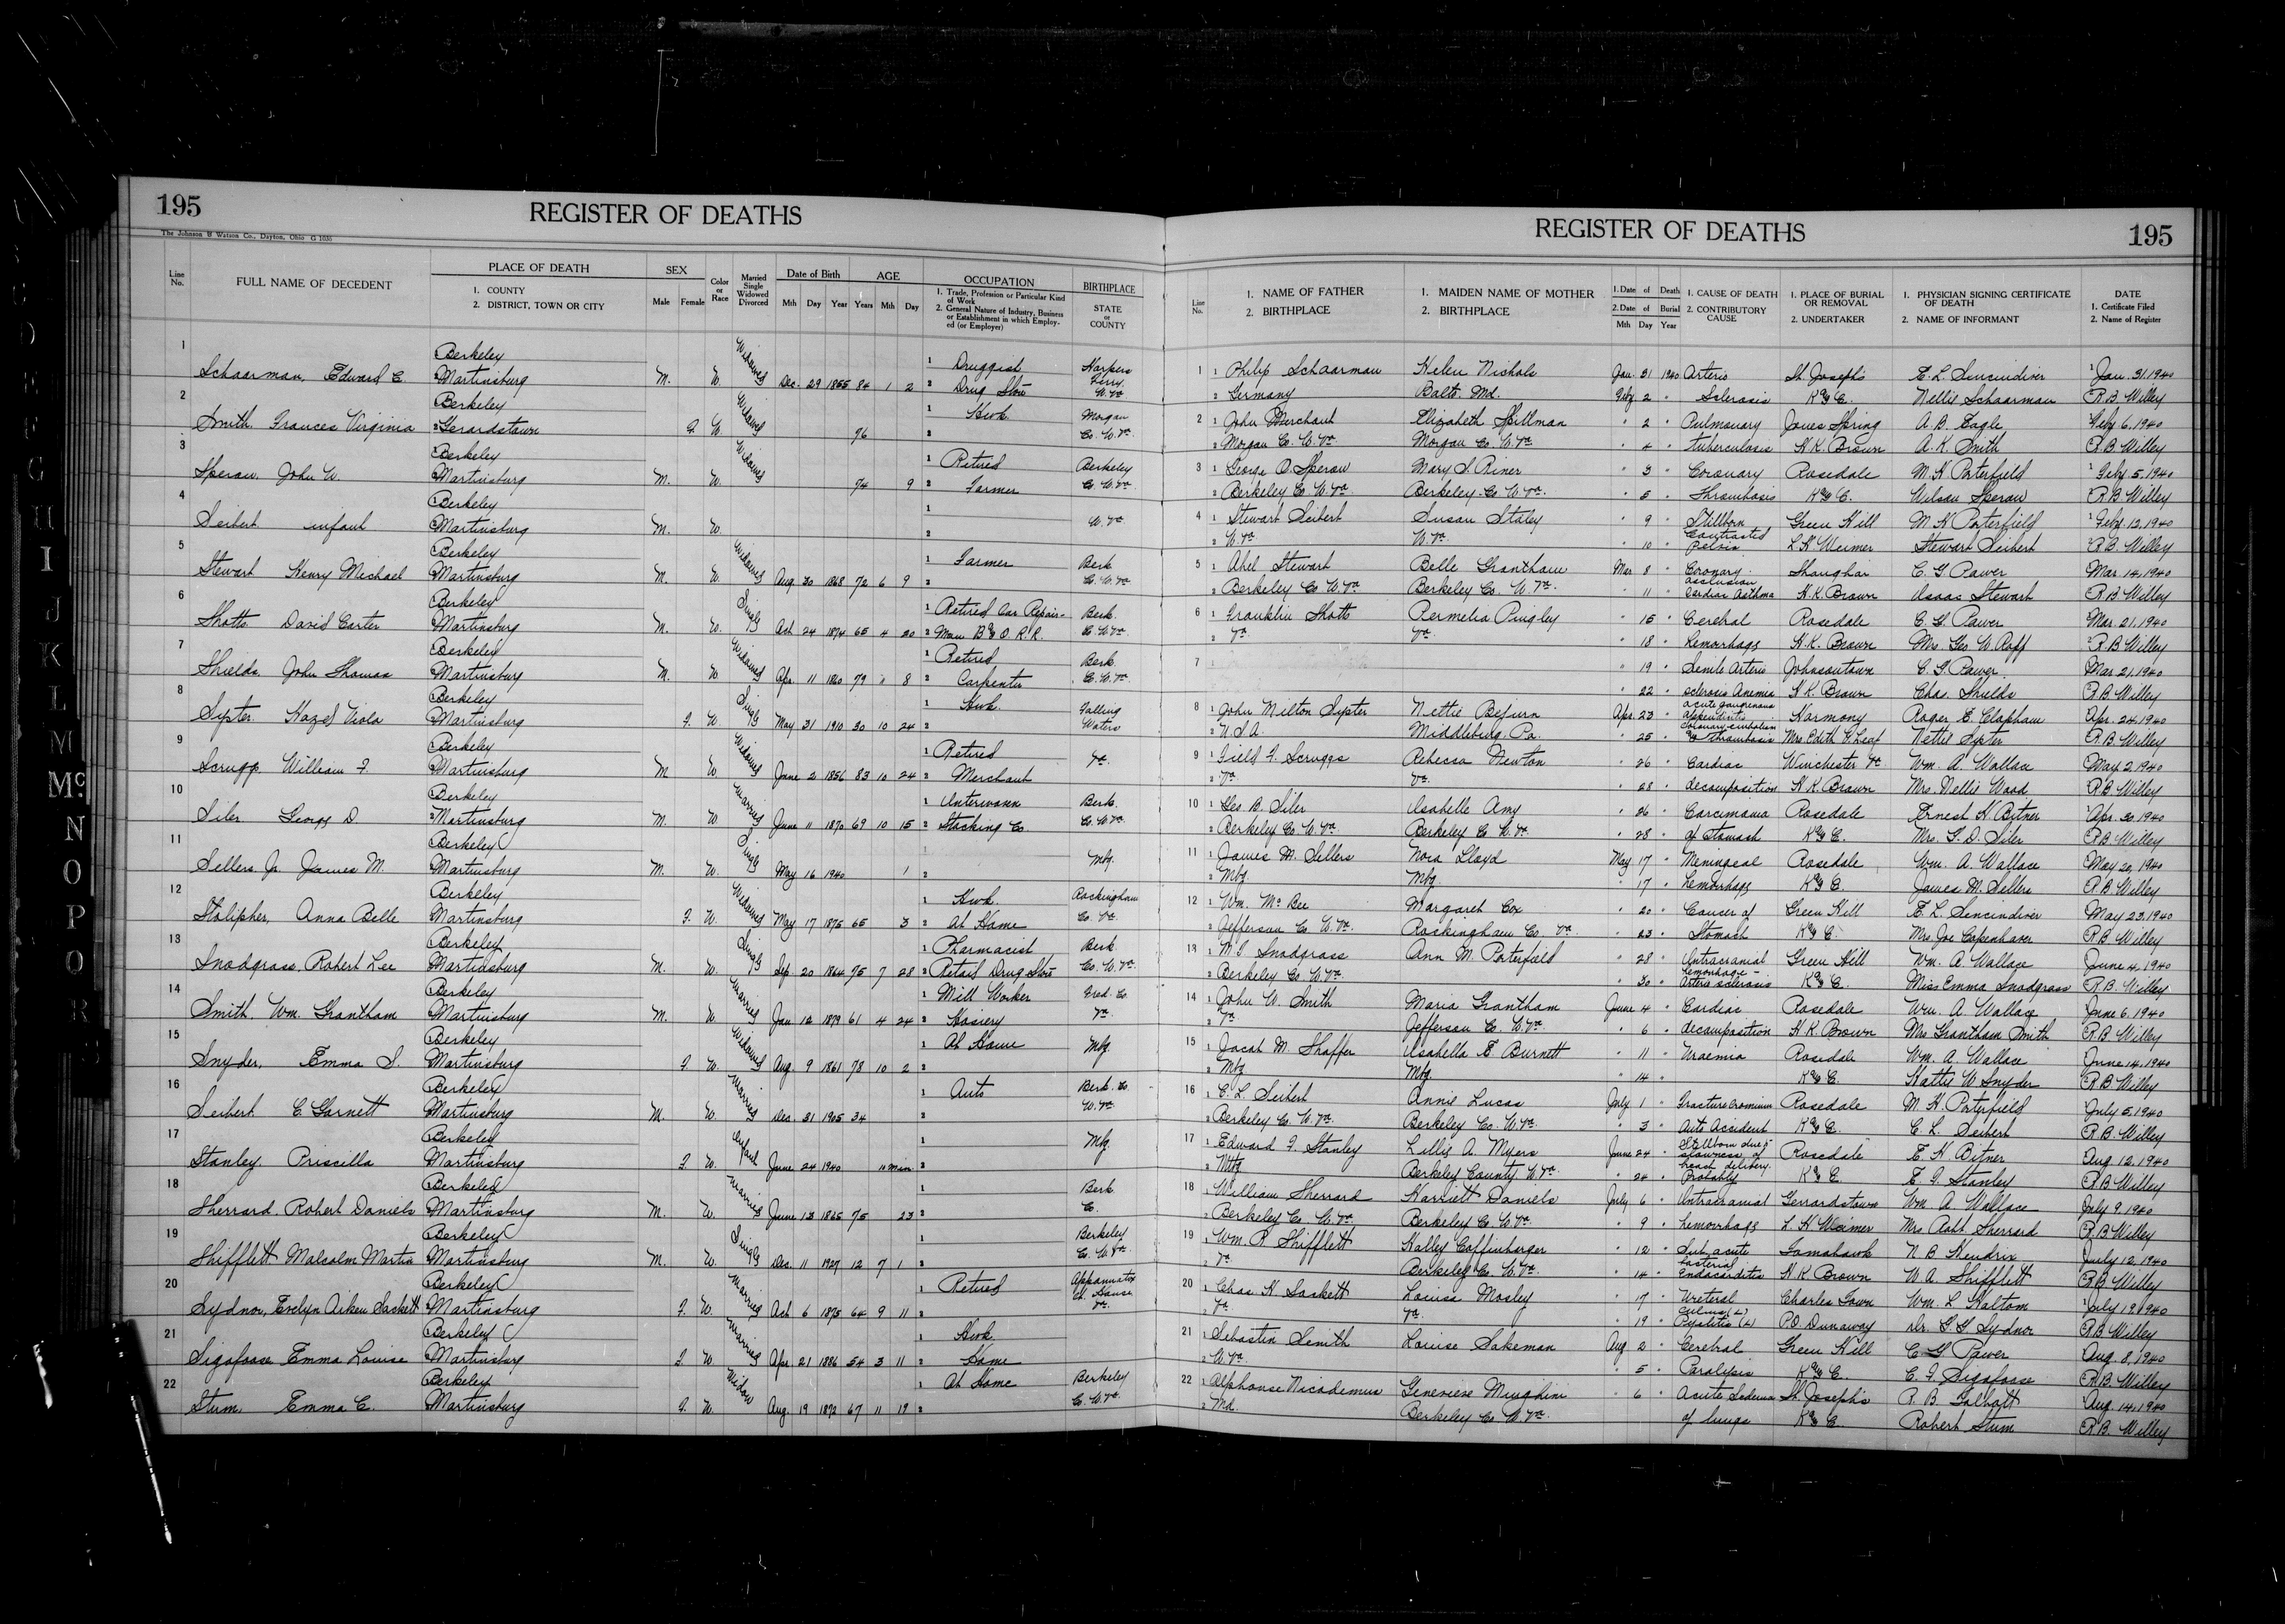 195
REGISTER OF DEATHS
The Johnson & Watson Co., Dayton, Ohio G 1035
Line No.
FULL NAME OF DECEDENT
PLACE OF DEATH
1. COUNTY
2. DISTRICT, TOWN OR CITY
SEX
Male Female
Color or Race
Married Single Widowed Divorced
Date of Birth
Mth Day Year
AGE
Years Mth Day
OCCUPATION
1. Trade, Profession or Particular Kind of Work
2. General Nature of Industry, Business or Establishment in which Employed (or Employer)
BIRTHPLACE
STATE or COUNTY
1 Berkeley 1 Druggist Harpers
Schaarman, Edward C. Martinsburg M. W. Widowed Dec. 29 1855 84 1 2 2 Drug Store Ferry W. Va
2 Berkeley 1 Hwk Morgan
Smith. Frances Virginia Gerardstown F. W. Widowed 76 2 Co. W. Va.
3 Berkeley 1 Retired Berkeley
Sperow, John W. Martinsburg M. W. Widowed 74 9 2 Farmer Co. W. Va.
4 Berkeley 1 W. Va.
Seibert infant Martinsburg M. W. 2
5 Berkeley 1 Farmer Berk
Stewart Henry Michael Martinsburg M. W. Widowed Aug 30 1868 72 6 9 2 Co. W. Va
6 Berkeley 1 Retired Car Repair- Berk.
Shotts David Carter Martinsburg M. W. Single Oct 24 1874 65 4 20 2 man B & O. R. R. Co W. Va.
7 Berkeley 1 Retired Berk.
Shields, John Thomas Martinsburg M. W. Widowed Apr. 11 1860 79 11 8 2 Carpenter Co. W. Va.
8 Berkeley 1 Hwk. Falling
Syster. Hazel Viola Martinsburg F. W. Single May 31 1910 30 10 24 2 Waters
9 Berkeley 1 Retired Va.
Scrugg. William F. Martinsburg M W Widowed June 2 1856 83 10 24 2 Merchant
10 Berkeley 1 Interwoven Berk.
Siler George D Martinsburg M. W. Married June 11 1870 69 10 15 2 Stocking Co Co. W. Va
11 Berkeley Mbg.
Sellers Jr. James M. Martinsburg M. W. Single May 16 1940 1 2
12 Berkeley 1 Hwk. Rockingham
Stolipher, Anna Belle Martinsburg F. W. Widowed May 17 1875 65 3 2 At Home Co. Va.
13 Berkeley 1 Pharmacist Berk.
Snodgrass, Robert Lee Martinsburg M. W. Single Sep. 20 1864 75 7 28 2 Retail Drug Store Co. W. Va.
14 Berkeley 1 Mill Worker Fred. Co
Smith. Wm. Grantham Martinsburg M. W. Married Jan 12 1879 61 4 24 2 Hosiery Va.
15 Berkeley 1 At Home Mbg.
Snyder, Emma S. Martinsburg F. W. Widowed Aug. 9 1861 78 10 2 2
16 Berkeley 1 Auto Berk. Co.
Seibert C. Garnett Martinsburg M. W. Married Dec. 31 1905 34 2 W. Va.
17 Berkeley 1 Mbg.
Stanley. Priscilla Martinsburg F. W. Infant June 24 1940 11 min 2
18 Berkeley 1 Berk
Sherrard. Robert Daniels Martinsburg M. W. Married June 13 1865 75 23 2 Co.
19 Berkeley 1 Berkeley
Shifflett Malcolm Martin Martinsburg M. W. Single Dec. 11 1927 12 7 1 2 Co. W. Va.
20 Berkeley 1 Retired Appomattox
Sydnor, Evelyn Aiken Sackett Martinsburg F. W. Married Oct 6 1875 64 9 11 2 Ct. House Va.
21 Berkeley 1 Hwk.
Sigafoose Emma Louise Martinsburg F. W Married Apr. 21 1886 54 3 11 2 Home
22 Berkeley 1 At Home Berkeley
Stum, Emma C. Martinsburg F. W. Widow Aug. 19 1872 67 11 19 2 Co. W. Va
REGISTER OF DEATHS
195
Line No.
1. NAME OF FATHER
2. BIRTHPLACE
1. MAIDEN NAME OF MOTHER
2. BIRTHPLACE
1. Date of Death
2. Date of Burial
Mth Day Year
1. CAUSE OF DEATH
2. CONTRIBUTORY CAUSE
1. PLACE OF BURIAL OR REMOVAL
2. UNDERTAKER
1. PHYSICIAN SIGNING CERTIFICATE OF DEATH
2. NAME OF INFORMANT
DATE
1. Certificate Filed
2. Name of Register
1 1 Philip Schaarman Helen Nichols Jan. 31 1940 Arterio St. Joseph's E. L. Sincindiver Jan. 31 1940
2 Germany Balto. Md. Feby 2 " Sclerosis K & C. Nellie Schaarman R. B. Willey
2 1 John Merchant Elizabeth Spillman " 2 " Pulmonary Jones Spring A. B. Eagle Feby 6, 1940
2 Morgan Co. W. Va. Morgan Co. W. Va " 4 " Tuberculosis H. K. Brown A. K. Smith R. B. Willey
3 1 George O. Sperow Mary S. Riner " 3 " Coronary Rosedale M. H. Porterfield Feby 5, 1940
2 Berkeley Co W. Va. Berkeley. Co W. Va. " 5 " Thrombosis K & C. Wilson Sperow R. B Willey
4 1 Stewart Seibert Susan Staley " 9 " Stillborn Green Hill M. H Porterfield Feby. 12, 1940
2 W. Va W. Va. " 10 " Contracted Pelvis L. H Weimer Stewart Seibert R. B. Willey
5 1 Abel Stewart Belle Grantham Mar 8 " Coronary occlusion Shanghai C. G. Power Mar. 14, 1940
2 Berkeley Co W. Va. Berkeley Co. W. Va. " 11 " Cardiac Asthma H. K. Brown Isaac Stewart R. B Willey
6 1 Franklin Shotts Permelia Pingley " 15 " Cerebral Rosedale C. G. Power Mar. 21, 1940
2 Va. Va. " 18 " hemorrhage H. K. Brown Mrs. Geo W. Roff R. B Willey
7 1 " 19 " Senile Arterio Johnsontown C. G. Power Mar 21, 1940
" 22 " sclerosis Anemia H K. Brown Chas. Shields R. B. Willey
8 1 John Milton Syster Nettie Apr. 23 " acute gangrenous appendicitis Harmony Roger E. Clapham Apr. 24, 1940
2 U. S. A. Middleburg, Pa. " 25 " thrombosis Mrs. Edith V. Leaf Nettie Syster R. B. Willey
9 1 Field F. Scruggs Rebecca Newton " 26 " Cardiac Winchester Va Wm. A. Wallace May 2, 1940
2 Va. Va. " 28 " decomposition H. K. Brown Mrs. Nellie Wood R. B. Willey
10 1 Geo. B. Siler Isabelle Amy " 26 " Carcinoma Rosedale Ernest H. Bitner Apr. 30, 1940
2 Berkeley Co. W. Va. Berkeley Co W. Va. " 28 " of Stomach K & C. Mrs. G. D. Siler R. B Willey
11 1 James M. Sellers Nora Lloyd May 17 " Meningeal Rosedale Wm. A. Wallace May 20, 1940
2 Mbg. Mbg " 17 " hemorrhage K & C. James M. Sellers R. B. Willey
12 1 Wm. McBee Margaret Cox " 20 " Cancer of Green Hill E. L. Sincindiver May 23, 1940
2 Jefferson Co W. Va. Rockingham Co. Va " 23 " Stomach K & C. Mrs Joe Copenhaver R. B. Willey
13 1 Snodgrass Ann M. Porterfield " 28 " Intracranial Green Hill Wm. A. Wallace June 4, 1940
2 Berkeley Co. W. Va. " 30 " hemorrhage - Arterio sclerosis K & C. Miss Emma Snodgrass R. B. Willey
14 1 John W. Smith Maria Grantham June 4 " Cardiac Rosedale Wm. A. Wallace June 6, 1940
2 Va Jefferson Co. W. Va " 6 " decomposition H. K. Brown Mrs Grantham Smith R. B. Willey
15 1 Jacob M. Shaffer Isabella E Burnett " 11 " Uraemia Rosedale Wm. A. Wallace June 14, 1940
2 Mbg Mbg. " 14 " K & C. Hattie W Snyder R. B Willey
16 1 C. L. Seibert Annie Lucas July 1 " Fracture Cranium Rosedale M. H. Porterfield July 5, 1940
2 Berkeley Co. W. Va. Berkeley Co. W. Va. " 3 " Auto Accident K & C. C L. Seibert R. B. Willey
17 1 Edward F. Stanley Lillis A. Myers June 24 " Stillborn due slowness of Rosedale E. H Bitner Aug 12, 1940
2 Mbg Berkeley County W. Va. " 24 " breach delivery. Probably K & C E. F. Stanley R. B Willey
18 1 William Sherrard Harriett Daniels July 6 " Intracranial Gerrardstown Wm A. Wallace July 9, 1940
2 Berkeley Co W. Va. Berkeley Co W. Va. " 9 " hemorrhage L H Weimer Mrs Robt Sherrard R. B Willey
19 1 Wm. R. Shifflett Halley Coffinbarger " 12 " Sub acute bacterial Tomahawk N. B Hendrix July 12, 1940
2 Va. Berkeley Co. W. Va. " 14 " endocarditis H K. Brown W. A. Shifflett R. B. Willey
20 1 Chas H Sackett Louisa Mosley " 17 " Ureteral Charles Town Wm. L Haltom July 19, 1940
2 Va. Va. " 19 " Pyelitis (L) P. D Dunaway Dr. G. G Sydnor R. B Willey
21 1 Sebastin Smith Louise Sakeman Aug 2 " Cerebral Green Hill C G Power Aug. 8, 1940
2 W. Va. " 5 " Paralysis K & C. C. F. Sigafoose R. B. Willey
22 1 Alphonse Nicodemus Genevieve " 6 " Acute Oedema St. Joseph's R. B. Talbott Aug. 14, 1940
2 Md. Berkeley Co W. Va. of lungs K & C. Robert Stum R. B. Willey
G
H
I
J
K
L
M
Mc
N
O
P
Q
R